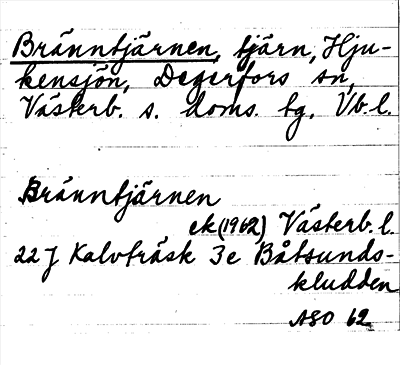 Bränntjärnen, tjärn, Hju-
kensjön, Degerfors sn,
Västerb. s. doms. tg. Vb. l.
Bränntjärnen
ek (1962) Västerb. l.
22 J Kalvträsk 3e Båtsunds-
kludden
ASO 62